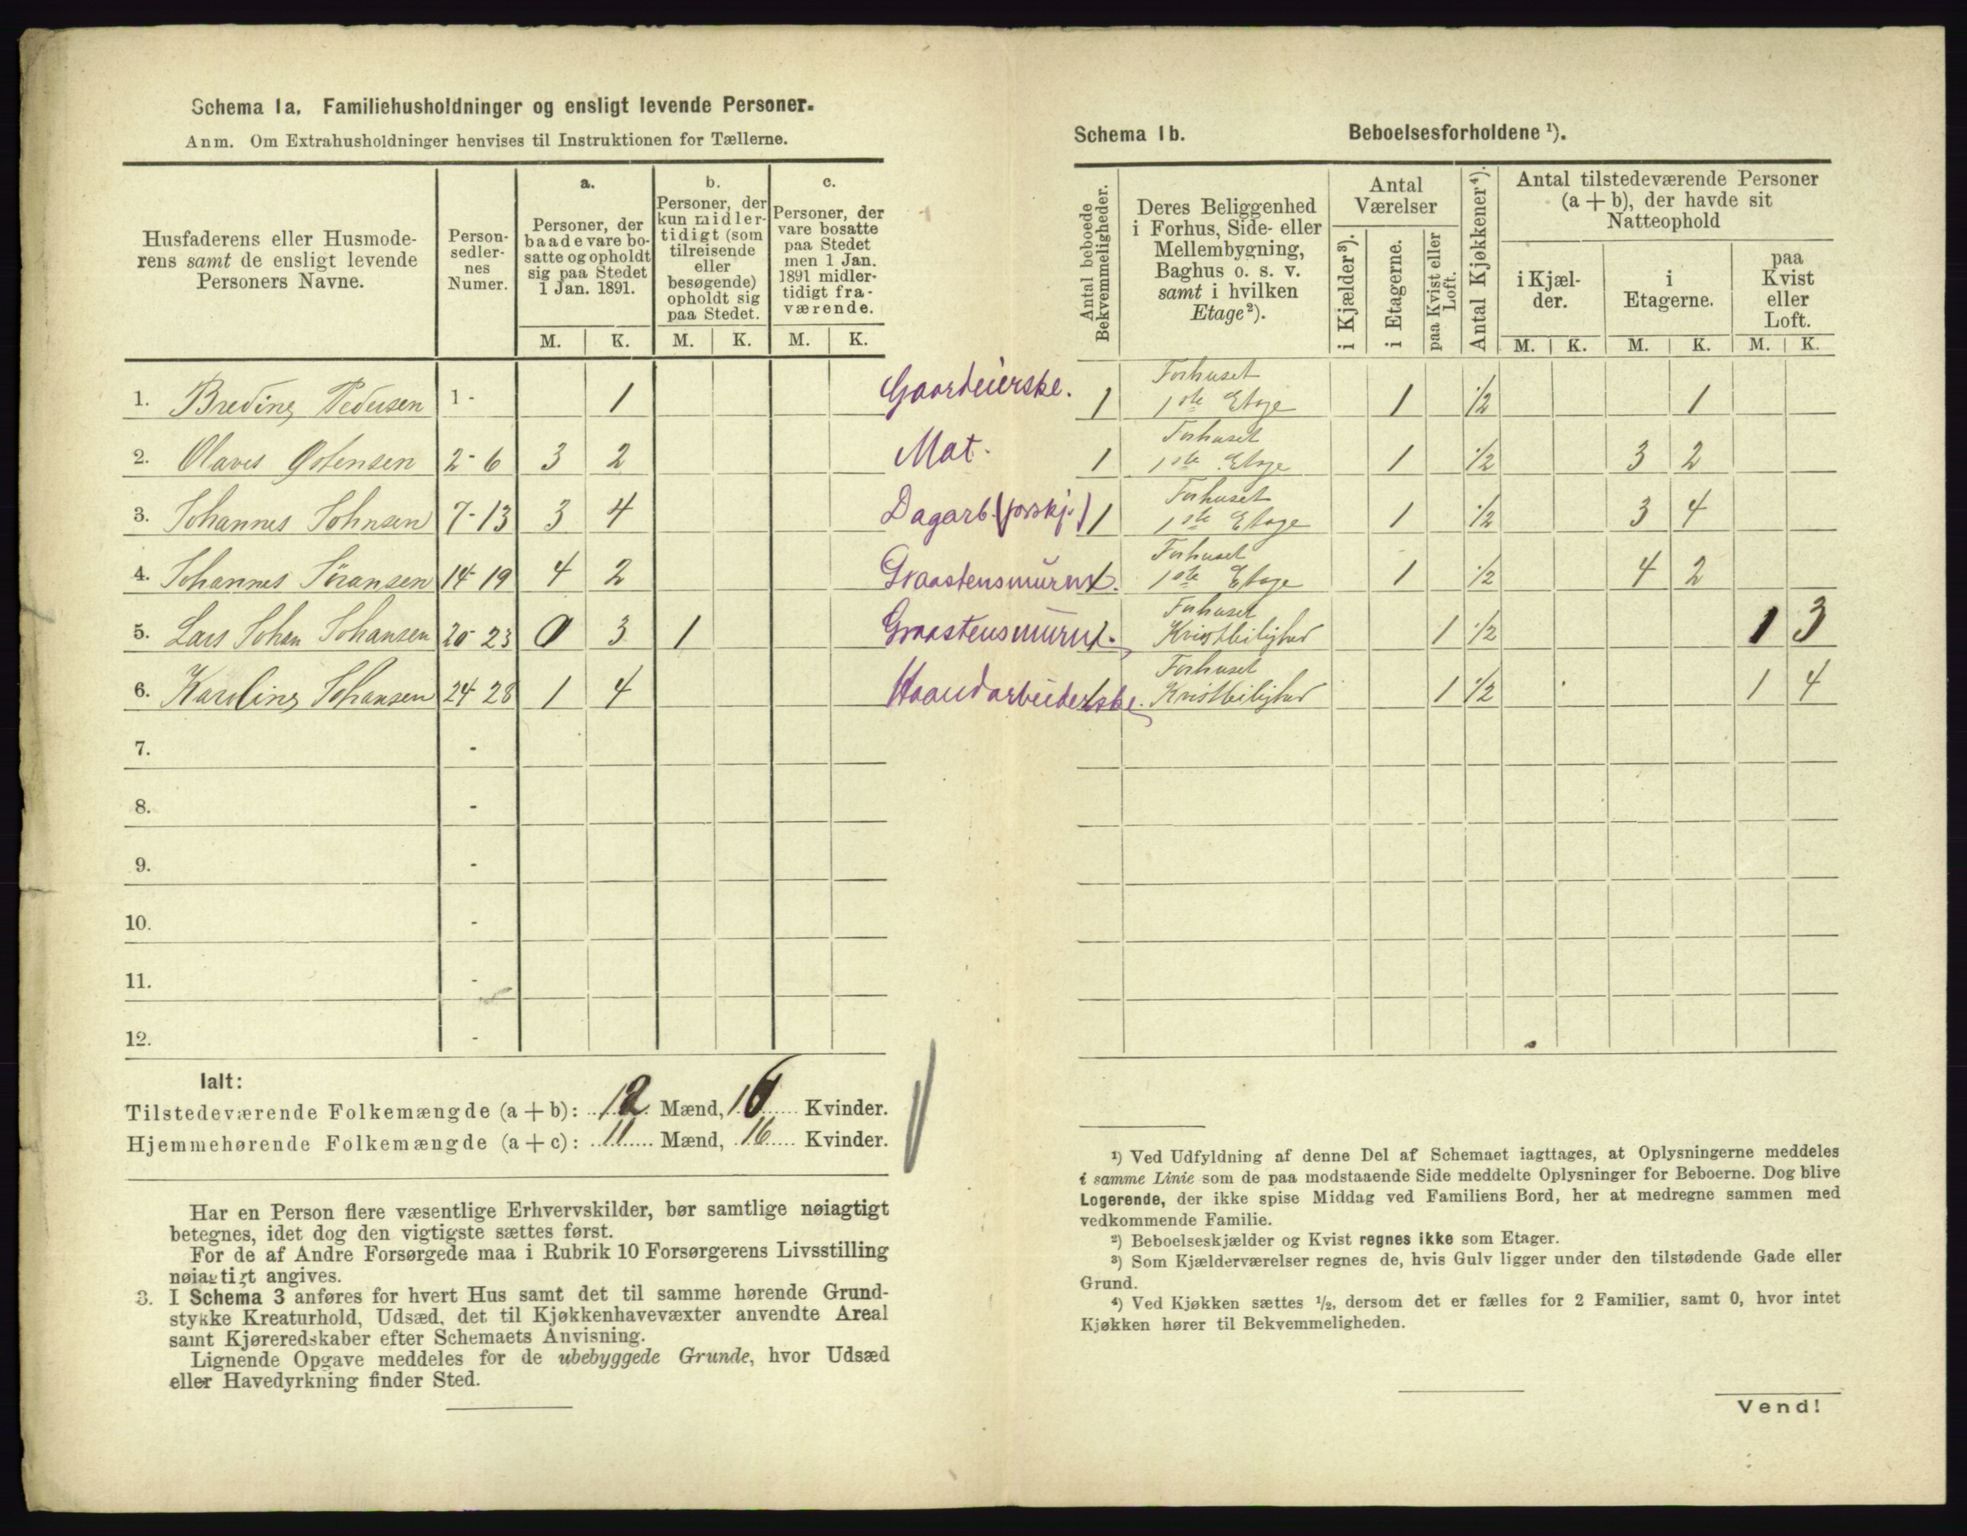 Schema 1a. Familiehusholdninger og ensligt levende Personer.
Anm. Om Extrahusholdninger henvises til Instruktionen for Tællerne.
Husfaderens eller Husmode-
rens samt de ensligt levende
Personers Navne.
Person-
sedler-
nes
Numer.
a.
Personer, der
baade vare bo-
satte og opholdt
sig paa Stedet
1 Jan. 1891.
b.
Personer, der
kun midler-
tidigt (som
tilreisende
eller
besøgende)
opholdt sig
paa Stedet.
c.
Personer, der
vare bosatte
paa Stedet
men 1 Jan.
1891 midler-
tidigt fra-
værende.
M. K. M. K. M. K.
1. Bredine Pedersen 1 - 1 Gaardeierske.
2. Olaves 2-6 3 2 Mat.
3. Johannes Johnsen 7-13 3 4 Dagarb. (forskj.)
4. Johannes Söransen 14-19 4 2 Graastensmurer.
5. Lars Johan Johansen 20-23 0 3 1 Graastensmurer.
6. Karoline Johansen 24-28 1 4 Haandarbeiderske.
7. -
8. -
9. -
10. -
11. -
12. -
Ialt:
Tilstedeværende Folkemængde (a + b): 12 Mænd, 16 Kvinder.
Hjemmehørende Folkemængde (a + c): 11 Mænd, 16 Kvinder.
Har en Person flere væsentlige Erhvervskilder, bør samtlige nøiagtigt
betegnes, idet dog den vigtigste sættes først.
For de af Andre Forsørgede maa i Rubrik 10 Forsørgerens Livsstilling
nøiagtigt angives.
3. I Schema 3 anføres for hvert Hus samt det til samme hørende Grund-
stykke Kreaturhold, Udsæd, det til Kjøkkenhavevæxter anvendte Areal
samt Kjøreredskaber efter Schemaets Anvisning.
Lignende Opgave meddeles for de ubebyggede Grunde, hvor Udsæd
eller Havedyrkning finder Sted.
Schema 1b. Beboelsesforholdene ¹).
Antal beboede
Bekvemmeligheder.
Deres Beliggenhed
i Forhus, Side- eller
Mellembygning,
Baghus o. s. v.
samt i hvilken
Etage²).
Antal
Værelser
i Kjælder³).
i Etagerne.
paa Kvist eller
Loft.
Antal Kjøkkener⁴).
Antal tilstedeværende Personer
(a + b), der havde sit
Natteophold
i Kjæl-
der.
i
Etagerne.
paa
Kvist
eller
Loft.
M. K. M. K. M. K.
Forhuset
1 1ste Etage 1 ½ 1
Forhuset
1 1ste Etage 1 ½ 3 2
Forhuset
1 1ste Etage 1 ½ 3 4
Forhuset
1 1ste Etage 1 ½ 4 2
Forhuset
1 Kvistleilighed 1 ½ 1 3
Forhuset
1 Kvistleilighed 1 ½ 1 4
¹) Ved Udfyldning af denne Del af Schemaet iagttages, at Oplysningerne meddeles
i samme Linie som de paa modstaaende Side meddelte Oplysninger for Beboerne. Dog blive
Logerende, der ikke spise Middag ved Familiens Bord, her at medregne sammen med
vedkommende Familie.
²) Beboelseskjælder og Kvist regnes ikke som Etager.
³) Som Kjælderværelser regnes de, hvis Gulv ligger under den tilstødende Gade eller
Grund.
⁴) Ved Kjøkken sættes ½, dersom det er fælles for 2 Familier, samt 0, hvor intet
Kjøkken hører til Bekvemmeligheden.
Vend!